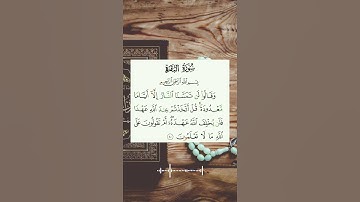 سُورَةُ البَقَرَةِ
بِسْمِ اللَّهِ الرَّحْمَٰنِ الرَّحِيمِ
وَقَالُوا لَن تَمَسَّنَا النَّارُ إِلَّا أَيَّامًا
مَّعْدُودَةً قُلْ أَتَّخَذْتُمْ عِندَ اللَّهِ عَهْدًا
فَلَن يُخْلِفَ اللَّهُ عَهْدَهُ أَمْ تَقُولُونَ عَلَى
اللَّهِ مَا لَا تَعْلَمُونَ